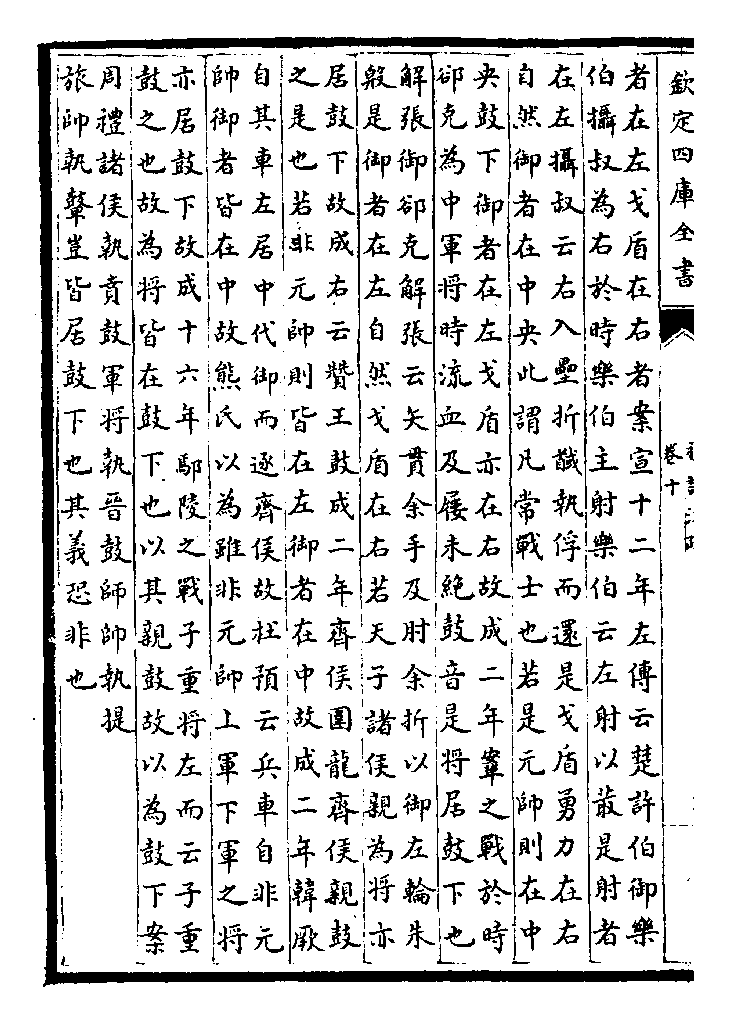 欽定四庫全書
卷十
者在左戈盾在右者案宣十二年左傳云楚許伯御樂
伯攝叔為右於時樂伯主射樂伯云左射以菆是射者
在左攝叔云右入壘折馘執俘而還是戈盾勇力在右
自然御者在中央此謂凡常戰士也若是元帥則在中
央鼓下御者在左戈盾亦在右故成二年鞌之戰於時
郤克為中軍將時流血及屨未絶鼓音是將居鼓下也
解張御郤克解張云矢貫余手及肘余折以御左輪朱
殷是御者在左自然戈盾在右若天子諸侯親為將亦
居鼓下故成右云贊王鼓成二年齊侯圍龍齊侯親鼓
之是也若非元帥則皆在左御者在中故成二年韓厥
自其車左居中代御而逐齊侯故杜預云兵車自非元
帥御者皆在中故熊氏以為雖非元帥上軍下軍之將
亦居鼓下故成十六年鄢陵之戰子重將左而云子重
鼓之也故為將皆在鼓下也以其親鼓故以為鼓下案
周禮諸侯執賁鼓軍將執晉鼓師帥執提
旅帥執鼙豈皆居鼓下也其義恐非也